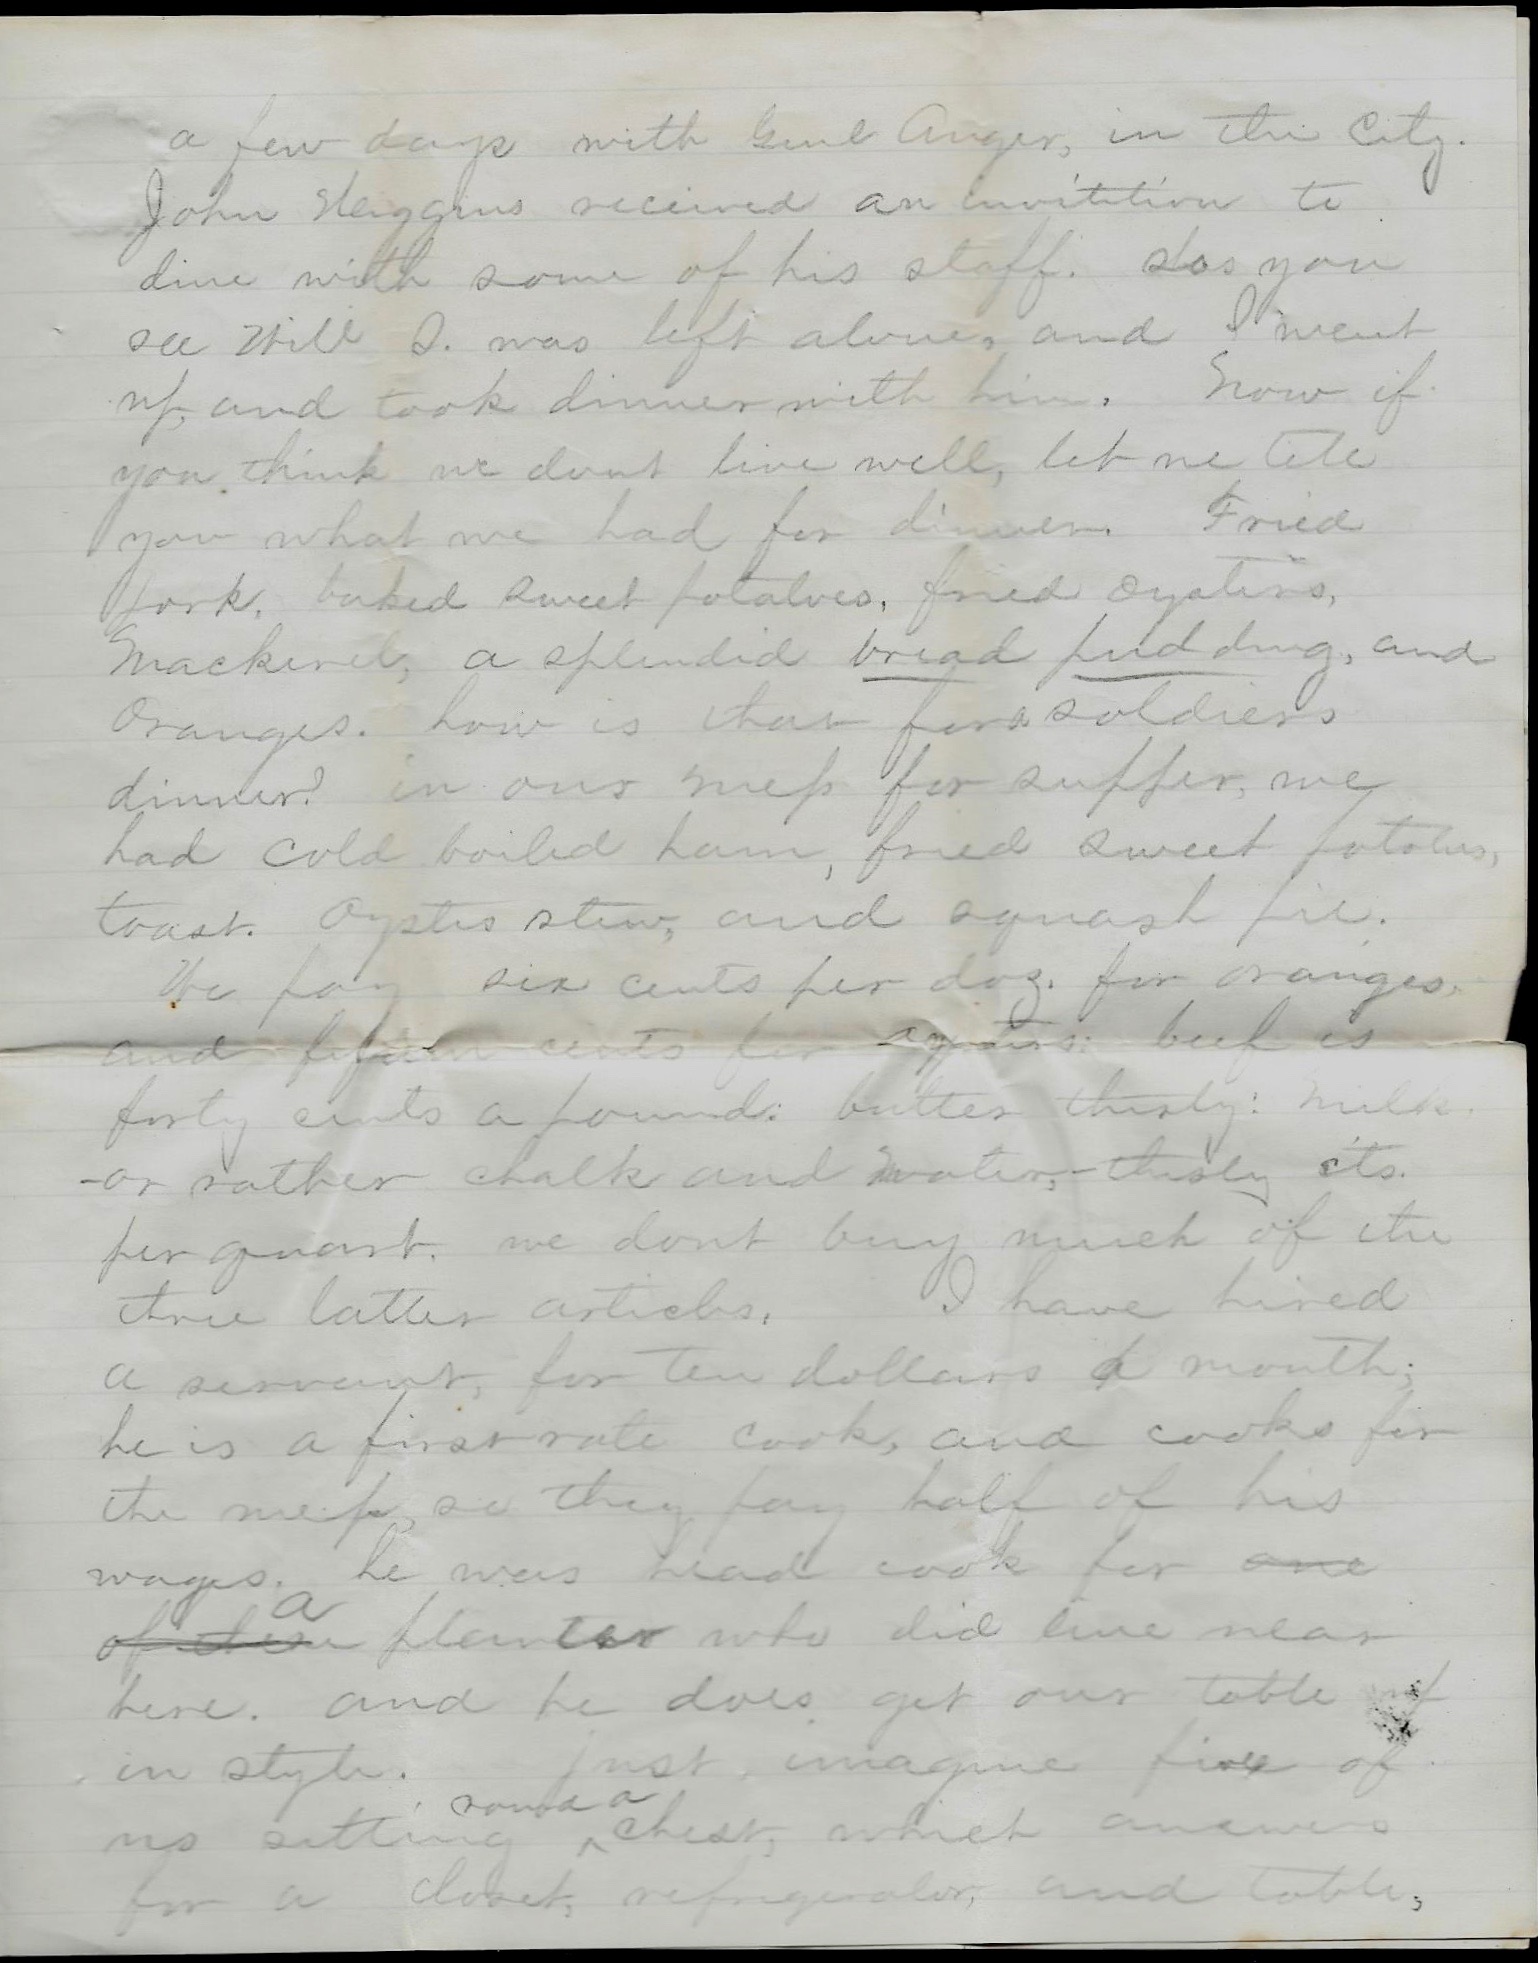 a few days with Genl Auger, in the City.
John Heggins received an invitition to
dine with some of his staff. So you
see Will S. was left alone, and I went
up, and took dinner with him. Now if
you think we dont live well, let me tell
you what we had for dinner. Fried
pork, baked sweet potatoes, fried oysters,
Mackerel, a splendid bread pudding, and
Oranges. how is that for a soldiers
dinner? in our mess for supper, we
had cold boiled ham, fried sweet potatoes,
toast. Oysters stew, and squash pie.
We pay six cents per doz. for oranges.
and fifteen cents for oysters: beef is
forty cents a pound: butter thirty: Milk.
-or rather chalk and water,- thirty cts.
per quart. we dont buy much of the
three latter articles. I have hired
a servant, for ten dollars a month;
he is a first rate cook, and cooks for
the mess, so they pay half of his
wages. he was head cook for one
of these a planter who did live near
here. and he does get our table up
in style. just imagine five of
us sitting round a chest, which answers
for a closet, refrigerator, and table,